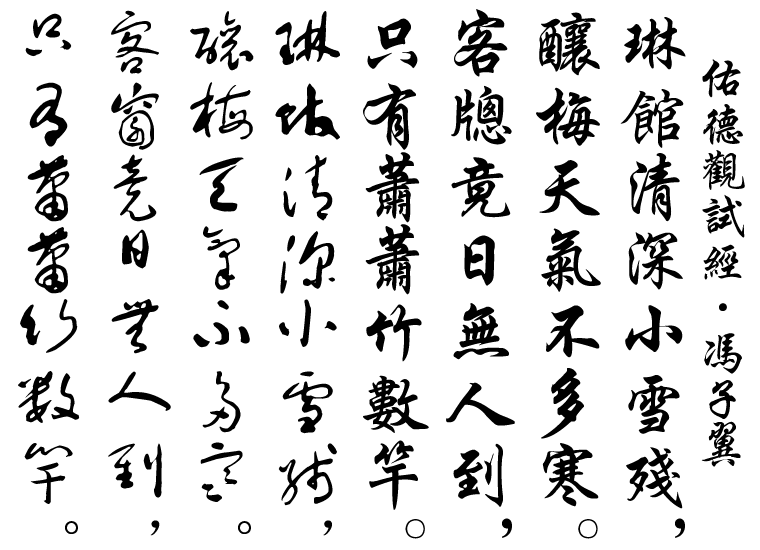 佑德觀試經・馮子翼
琳館清深小雪殘，
釀梅天氣不多寒。
客牕竟日無人到，
只有蕭蕭竹數竿。
琳館清深小雪殘，
釀梅天氣不多寒。
客窗竟日無人到，
只有蕭蕭竹數竿。